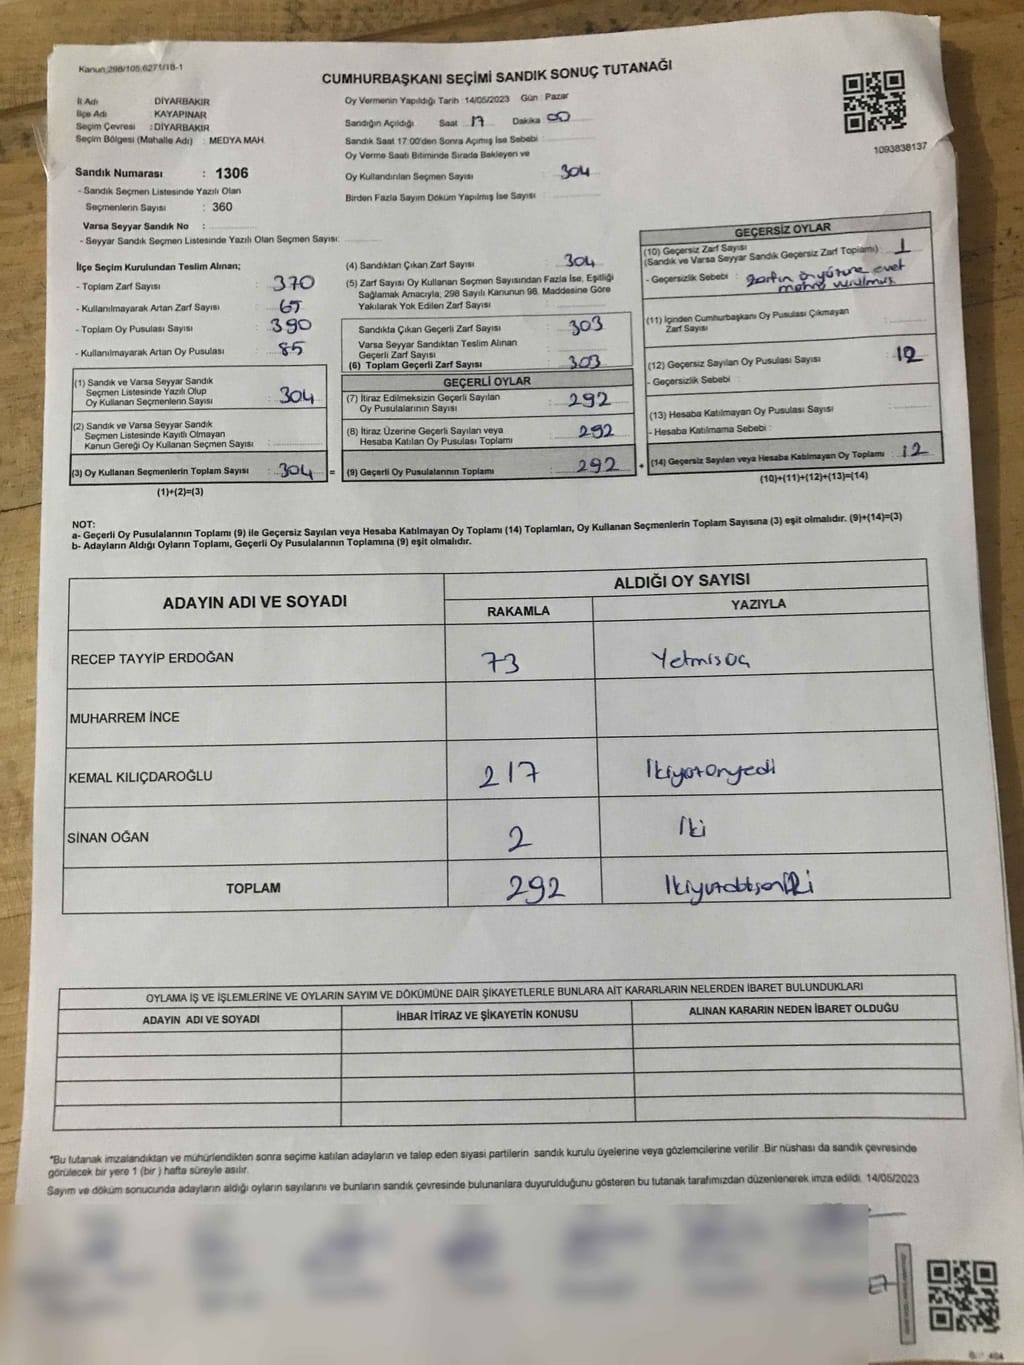 Kanun:298/105,6271/18-1
CUMHURBAŞKANI SEÇİMİ SANDIK SONUÇ TUTANAĞI
İl Adı DİYARBAKIR
İlçe Adı KAYAPINAR
Seçim Çevresi : DİYARBAKIR
Seçim Bölgesi (Mahalle Adı) : MEDYA MAH
Oy Vermenin Yapıldığı Tarih 14/05/2023 Gün : Pazar
Sandığın Açıldığı Saat 17 Dakika 00
Sandık Saat 17:00'den Sonra Açımış İse Sebebi
Oy Verme Saati Bitiminde Sırada Bekleyen ve
Oy Kullandırılan Seçmen Sayısı 304
Birden Fazla Sayım Döküm Yapılmış İse Sayısı
1093838137
Sandık Numarası : 1306
- Sandık Seçmen Listesinde Yazılı Olan
Seçmenlerin Sayısı : 360
Varsa Seyyar Sandık No :
- Seyyar Sandık Seçmen Listesinde Yazılı Olan Seçmen Sayısı:
İlçe Seçim Kurulundan Teslim Alınan;
- Toplam Zarf Sayısı : 370
- Kullanılmayarak Artan Zarf Sayısı : 65
- Toplam Oy Pusulası Sayısı : 390
- Kullanılmayarak Artan Oy Pusulası : 85
(1) Sandık ve Varsa Seyyar Sandık
Seçmen Listesinde Yazılı Olup
Oy Kullanan Seçmenlerin Sayısı : 304
(2) Sandık ve Varsa Seyyar Sandık
Seçmen Listesinde Kayıtlı Olmayan
Kanun Gereği Oy Kullanan Seçmen Sayısı :
(3) Oy Kullanan Seçmenlerin Toplam Sayısı : 304 =
(1)+(2)=(3)
(4) Sandıktan Çıkan Zarf Sayısı : 304
(5) Zarf Sayısı Oy Kullanan Seçmen Sayısından Fazla İse, Eşitliği
Sağlamak Amacıyla, 298 Sayılı Kanunun 98. Maddesine Göre
Yakılarak Yok Edilen Zarf Sayısı
Sandıkta Çıkan Geçerli Zarf Sayısı : 303
Varsa Seyyar Sandıktan Teslim Alınan
Geçerli Zarf Sayısı
(6) Toplam Geçerli Zarf Sayısı : 303
GEÇERLİ OYLAR
(7) İtiraz Edilmeksizin Geçerli Sayılan
Oy Pusulalarının Sayısı : 292
(8) İtiraz Üzerine Geçerli Sayılan veya
Hesaba Katılan Oy Pusulası Toplamı : 292
(9) Geçerli Oy Pusulalarının Toplamı : 292 +
GEÇERSİZ OYLAR
(10) Geçersiz Zarf Sayısı
(Sandık ve Varsa Seyyar Sandık Geçersiz Zarf Toplamı) : 1
- Geçersizlik Sebebi : zarfın önyüzüne evet
(11) İçinden Cumhurbaşkanı Oy Pusulası Çıkmayan
Zarf Sayısı
(12) Geçersiz Sayılan Oy Pusulası Sayısı 12
- Geçersizlik Sebebi :
(13) Hesaba Katılmayan Oy Pusulası Sayısı
- Hesaba Katılmama Sebebi :
(14) Geçersiz Sayılan veya Hesaba Katılmayan Oy Toplamı : 12
(10)+(11)+(12)+(13)=(14)
NOT:
a- Geçerli Oy Pusulalarının Toplamı (9) ile Geçersiz Sayılan veya Hesaba Katılmayan Oy Toplamı (14) Toplamları, Oy Kullanan Seçmenlerin Toplam Sayısına (3) eşit olmalıdır. (9)+(14)=(3)
b- Adayların Aldığı Oyların Toplamı, Geçerli Oy Pusulalarının Toplamına (9) eşit olmalıdır.
ADAYIN ADI VE SOYADI ALDIĞI OY SAYISI
RAKAMLA YAZIYLA
RECEP TAYYİP ERDOĞAN 73 Yetmişüç
MUHARREM İNCE
KEMAL KILIÇDAROĞLU 217 İkiyüzonyedi
SİNAN OĞAN 2 İki
TOPLAM 292
OYLAMA İŞ VE İŞLEMLERİNE VE OYLARIN SAYIM VE DÖKÜMÜNE DAİR ŞİKAYETLERLE BUNLARA AİT KARARLARIN NELERDEN İBARET BULUNDUKLARI
ADAYIN ADI VE SOYADI İHBAR İTİRAZ VE ŞİKAYETİN KONUSU ALINAN KARARIN NEDEN İBARET OLDUĞU
*Bu tutanak imzalandıktan ve mühürlendikten sonra seçime katılan adayların ve talep eden siyasi partilerin sandık kurulu üyelerine veya gözlemcilerine verilir. Bir nüshası da sandık çevresinde
görülecek bir yere 1 (bir ) hafta süreyle asılır.
Sayım ve döküm sonucunda adayların aldığı oyların sayılarını ve bunların sandık çevresinde bulunanlara duyurulduğunu gösteren bu tutanak tarafımızdan düzenlenerek imza edildi. 14/05/2023